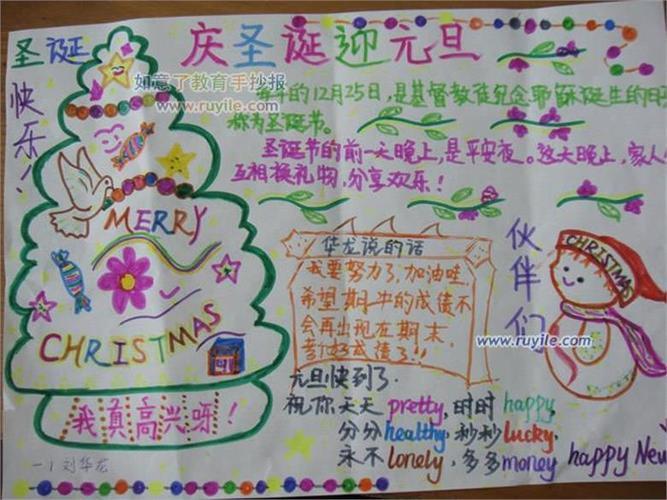 庆圣诞迎元旦
圣诞
快乐!
如意了教育手抄报
www.ruyile.com
每年的12月25日,是基督教徒纪念耶稣诞生的日
称为圣诞节。
圣诞节的前一天晚上,是平安夜。这天晚上,家人
互相换礼物,分享欢乐!
MERRY
CHRISTMAS
我真高兴呀!
一1 刘华龙
华龙说的话
我要努力了,加油哇.
希望期中的成绩不
会再出现在期末,
考好成绩了!!
伙伴们
CHRISTMAS
www.ruyile.com
元旦快到了.
祝你天天pretty,时时happy,
分分healthy,秒秒lucky,
永不lonely,多多money happy New